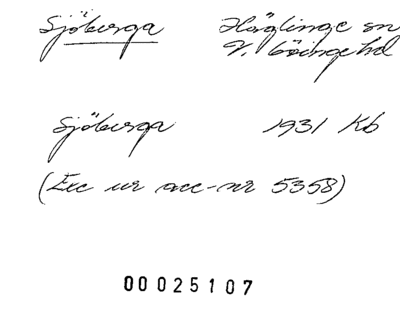 Sjöberga Häglinge sn
V. Göinge hd
Sjöberga 1931 Kb
(Exc ur acc-nr 5358)
00025107